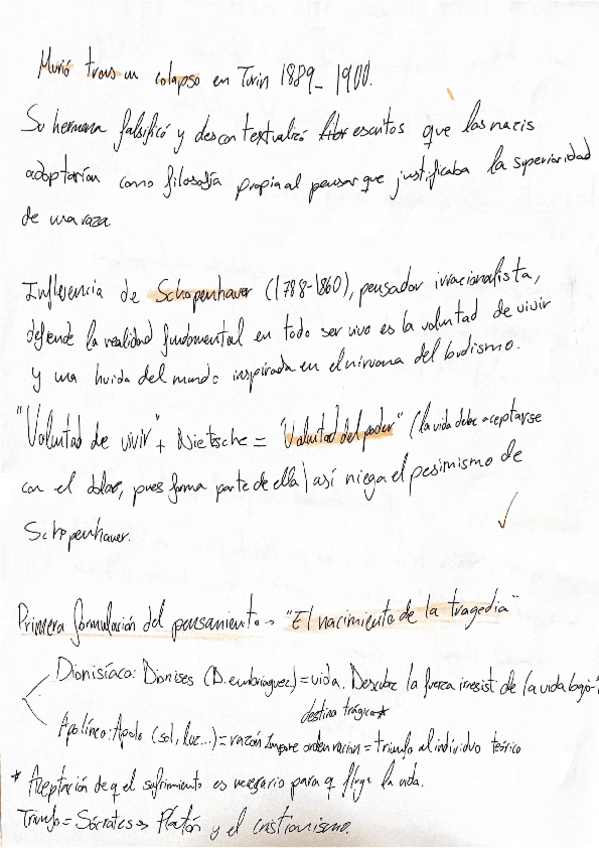 Murió tras un colapso en Turin 1889_1900.
Su hermana falsificó y descontextualizó escritos que los nazis
adoptarían como filosofía propia al pensar que justificaba la superioridad
de una raza
Influencia de Schopenhauer (1788-1860), pensador irracionalista,
defiende la realidad fundamental en todo ser vivo es la voluntad de vivir
y una huida del mundo inspirada en el nirvana del budismo.
"Voluntad de vivir" + Nietzsche = "Voluntad del poder" (la vida debe aceptarse
con el dolor, pues forma parte de ella) así niega el pesimismo de
Schopenhauer.
Primera formulación del pensamiento → "El nacimiento de la tragedia"
Dionisíaco: Dionises (D. embriaguez) = vida. Descubre la fuerza irresist de la vida
destino trágico*
Apolíneo: Apolo (sol, luz...) = razón Impone orden = triunfo al individuo teórico
* Aceptación de q el sufrimiento es necesario para q fluya la vida.
Triunfo = Sócrates → Platón y el cristianismo.